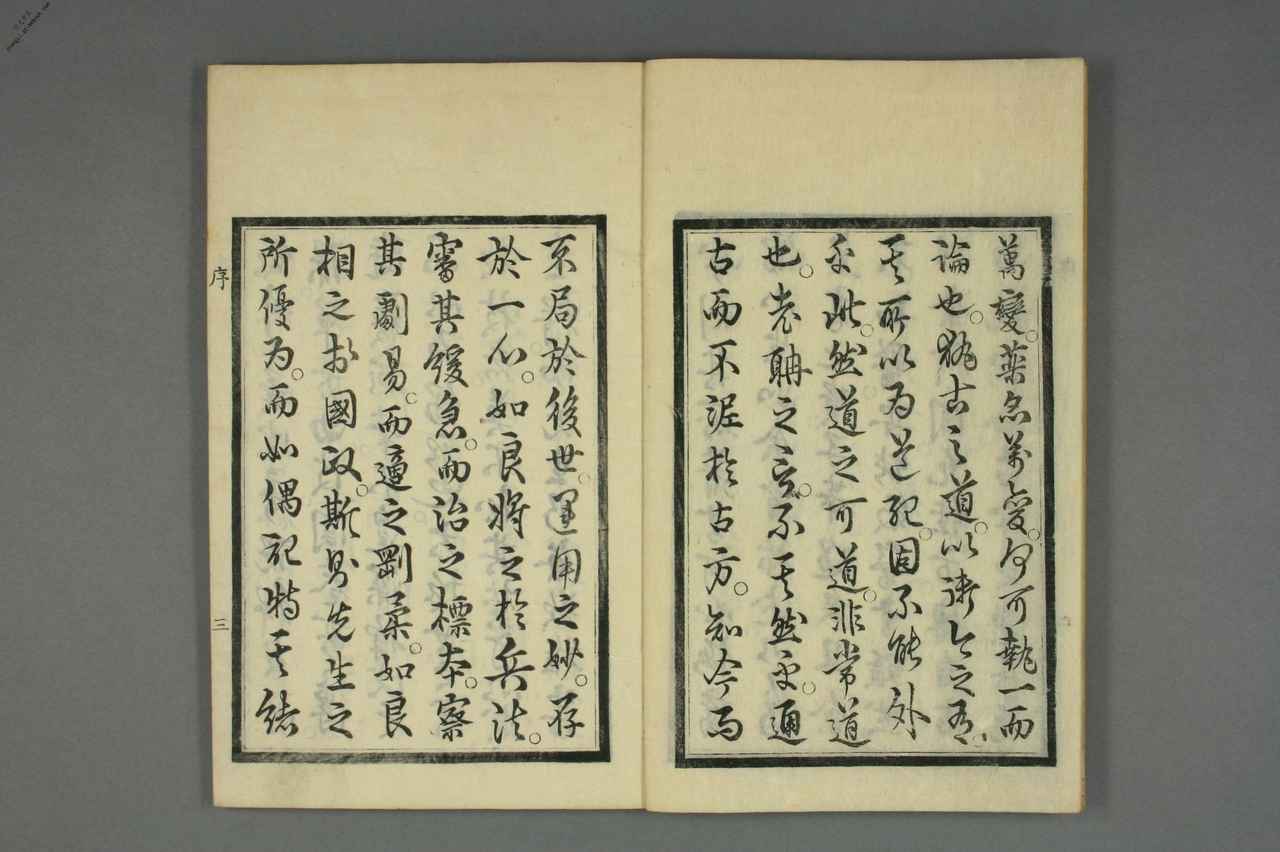 萬變。藥忽萬變。何可執一而
論也。執古之道。以御今之有。
其所以為道紀。固不能外
乎此。然道之可道。非常道
也。老聃之言。不其然乎。通
古而不泥於古方。知今而
不局於後世。運用之妙。存
於一心。如良將之於兵法。
審其緩急。而治之標本。察
其劇易。而適之剛柔。如良
相之於國政。斯則先生之
所優為。而如偶記特其緒
序
三